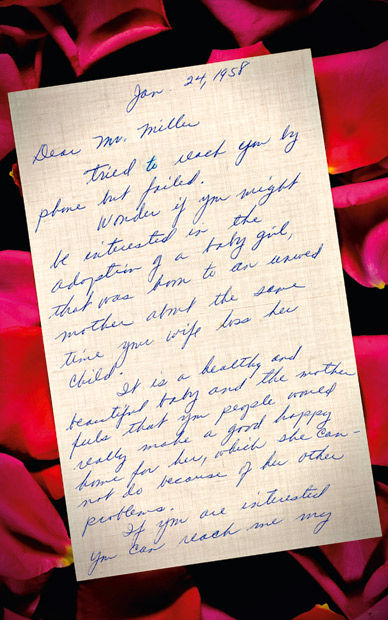 Jan. 24, 1958
Dear Mr. Miller
tried to reach you by
phone but failed.
Wonder if you might
be interested in the
adoption of a baby girl,
that was born to an unwed
mother about the same
time your wife loss her
child?
It is a healthy and
beautiful baby and the mother
feels that you people would
really make a good happy
home for her, which she can-
not do because of her other
problems.
If you are interested
you can reach me my